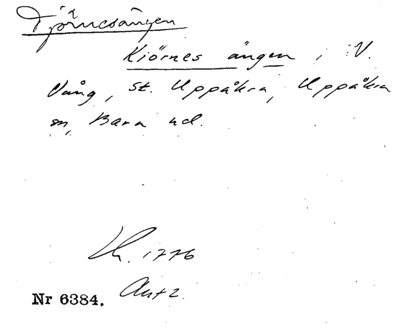 Tjörnesängen
Kiörnes ängen, i V.
Vång, St. Uppåkra, Uppåkra
sn, Bara hd.
Lh. 1776
Akt 2.
Nr 6384.